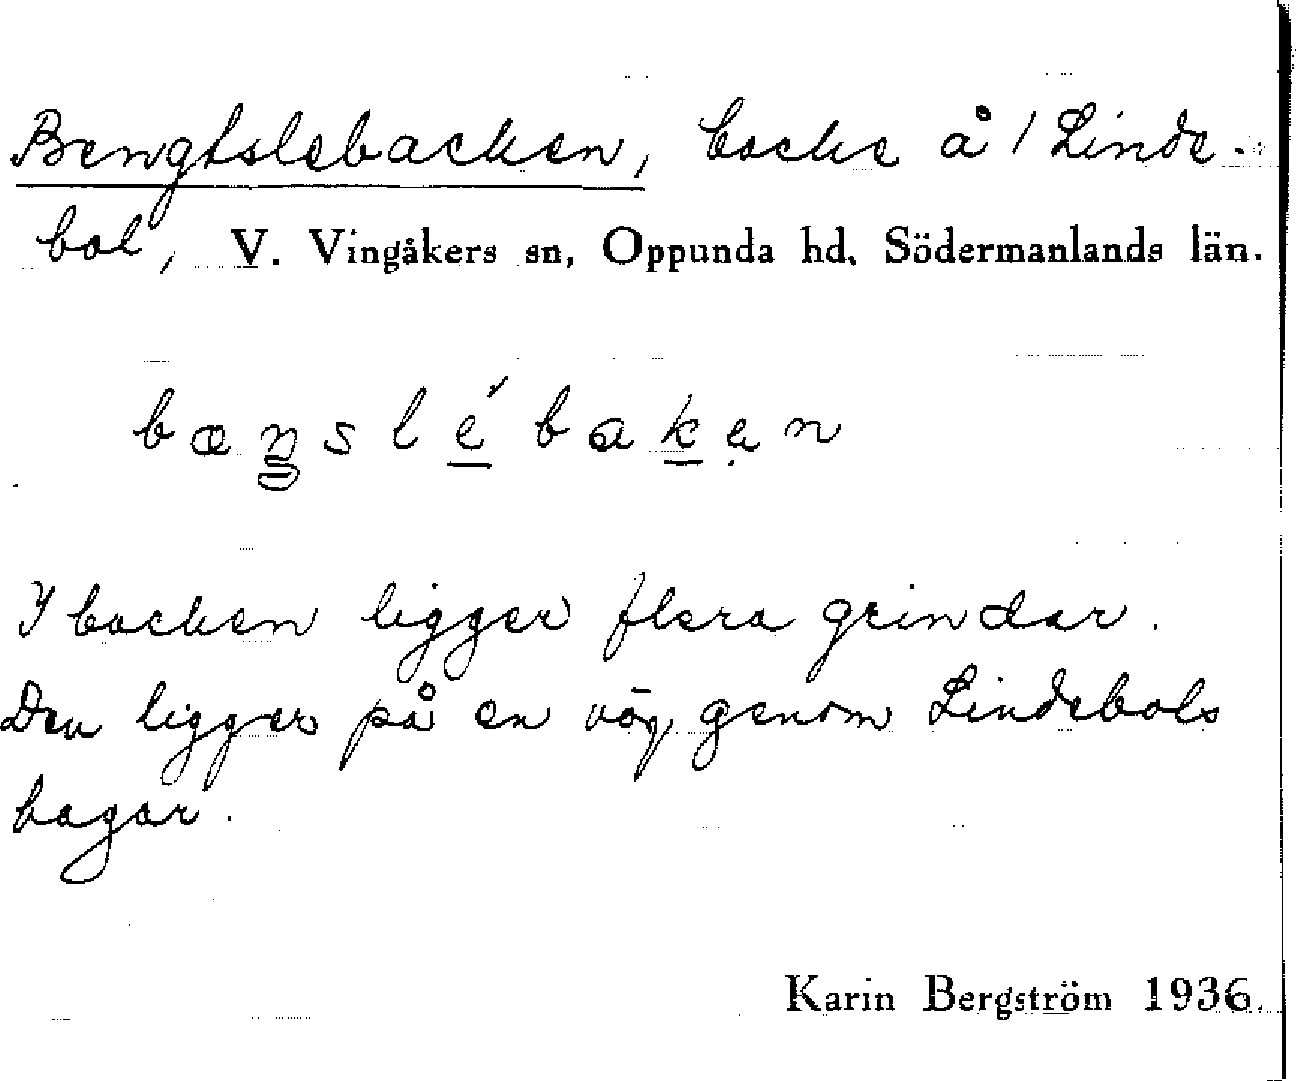 Bengtslebacken, backe å 1 Linde-
bol, V. Vingåkers sn, Oppunda hd, Södermanlands län.
bæŋslébakən
I backen ligger flera grindar.
Den ligger på en väg genom Lindebols
hagar.
Karin Bergström 1936.